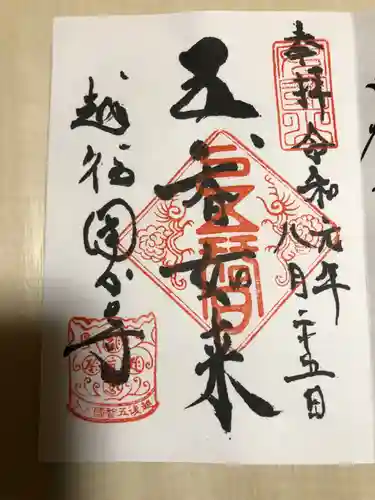 奉拝 令和元年八月二十五日
五智如来
越後国分寺